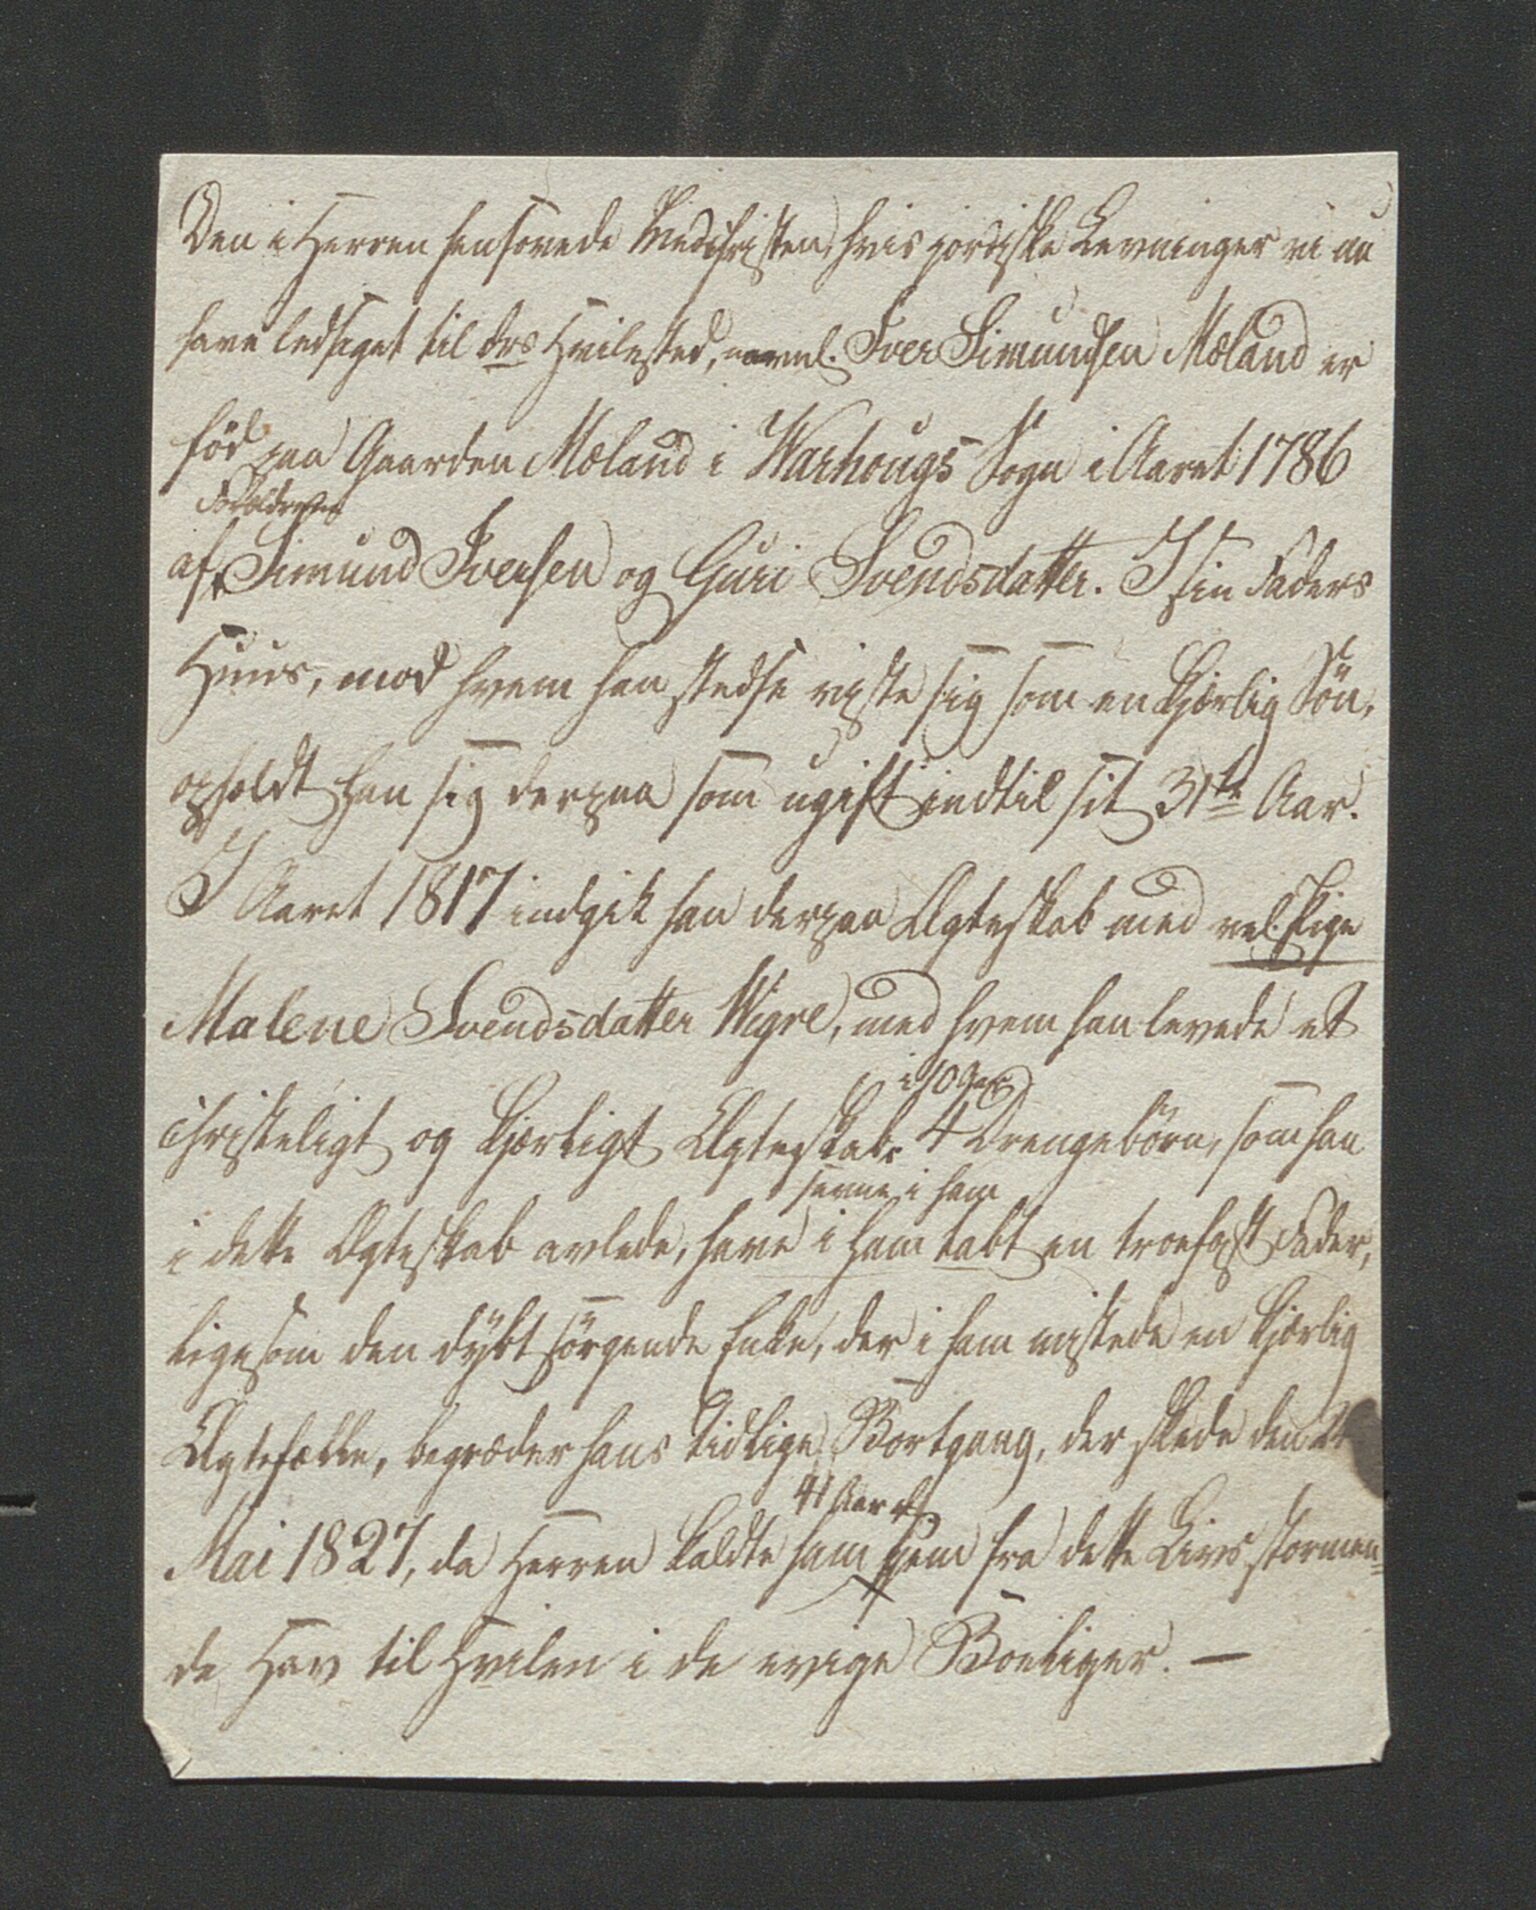 Den i Herren hensovede Medchristen, hvis jordiske Levninger vi nu
have ledsaget til det Hvilested, navnl. Iver Simundsen Mæland er
fød paa Gaarden Mæland i Warhougs Sogn i Aaret 1786
Forældrene
af Simund Iversen og Guri Svendsdatter. I sin Faders
Huus, mod hvem han stedse viste sig som en kjærlig Søn,
opholdt han sig derpaa som ugift indtil sit 31te Aar.
I Aaret 1817 indgik han derpaa Ægteskab med vel. Pige
Malene Svendsdatter Wigre, med hvem han levede et
i 10 Aar
christeligt og kjærligt Ægteskab. 4 Drengebørn, som han
i ham
i dette Ægteskab avlede, have i ham tabt en troefast Fader,
ligesom den dybt sørgende Enke, der i ham mistede en kjærlig
Ægtefælle, begræder hans tidlige Bortgang, der skede den
41 Aar
Mai 1827, da Herren kaldte ham hjem fra dette Livs stormen=
de Hav til Hvilen i de evige Boeliger. —